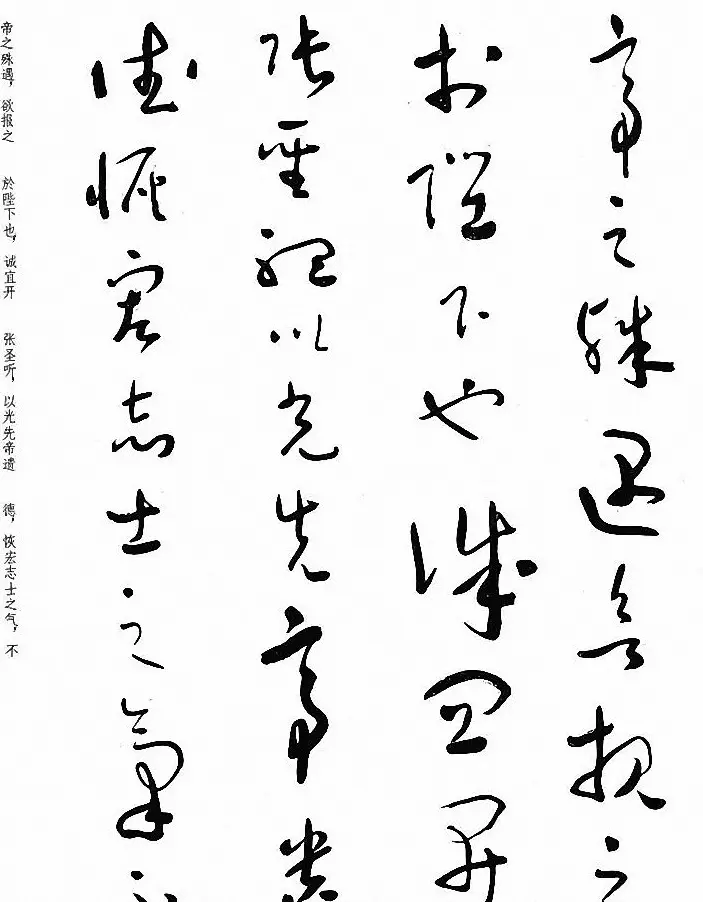 帝之殊遇欲报之
於陛下也诚宜开
张圣听以光先帝遗
德恢宏志士之气不
帝之殊遇，欲报之 於陛下也，诚宜开 张圣听，以光先帝遗 德，恢宏志士之气，不